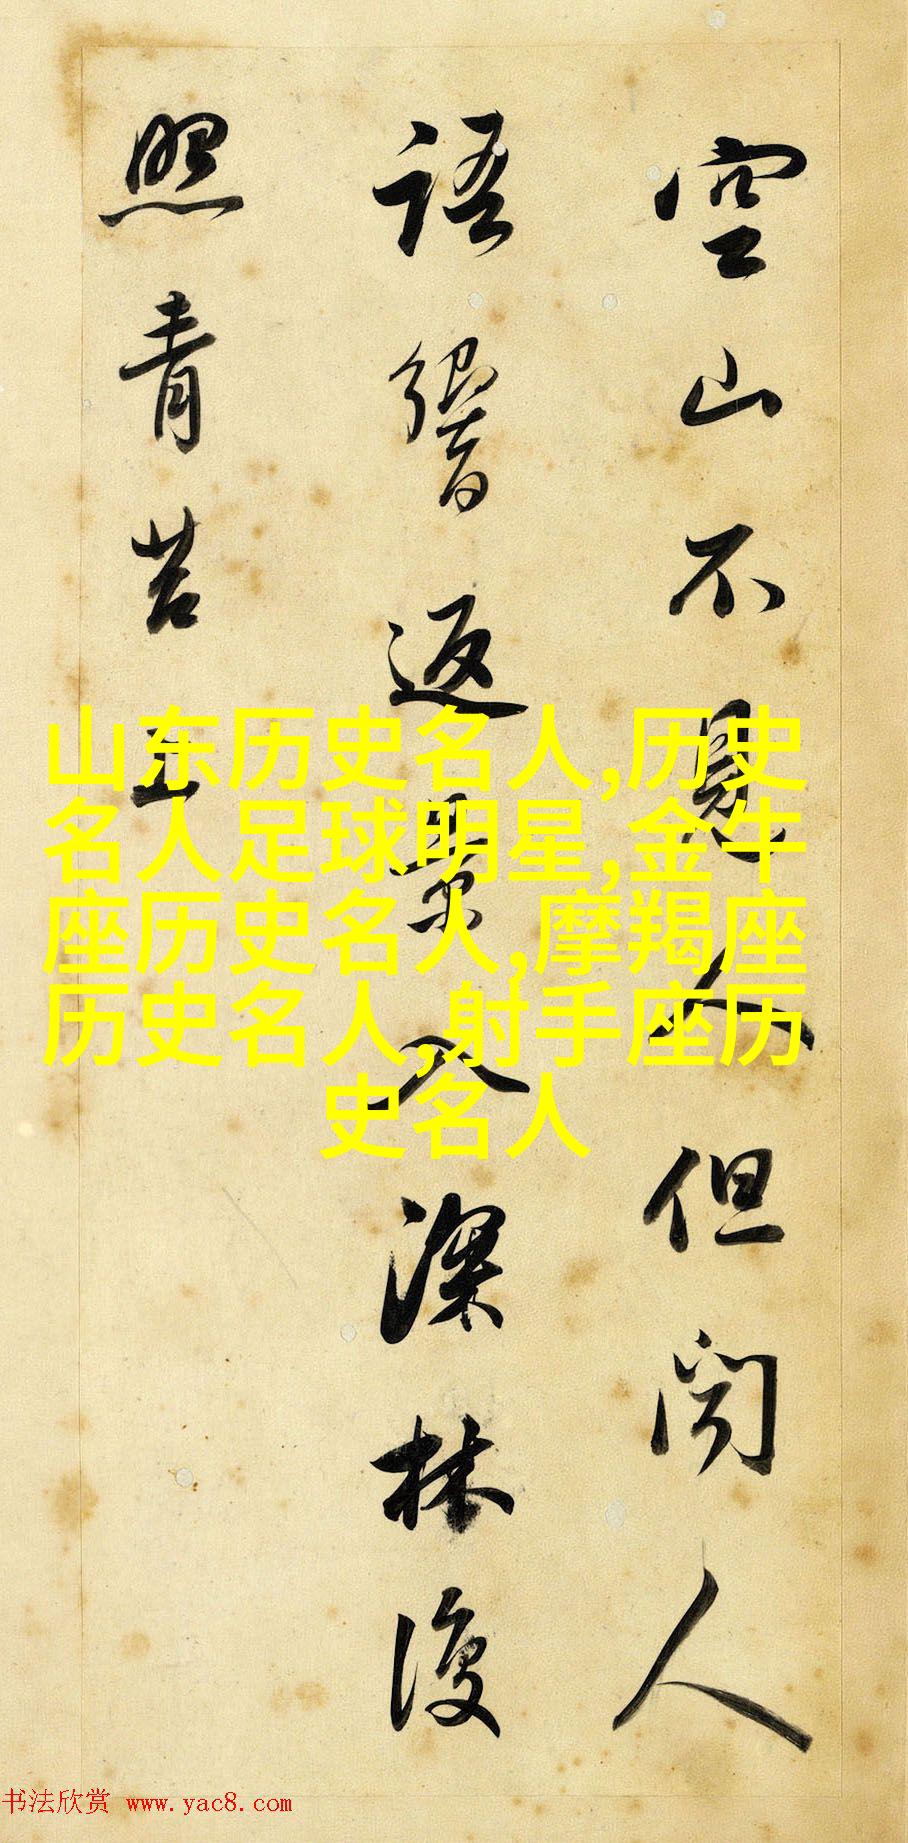 空山不見人但聞人
語響返景入深林復
照青苔上
山东历史名人,历史
名人足球明星,金牛
座历史名人,摩羯座
历史名人,射手座历
史名人
书法欣赏 www.yac8.com